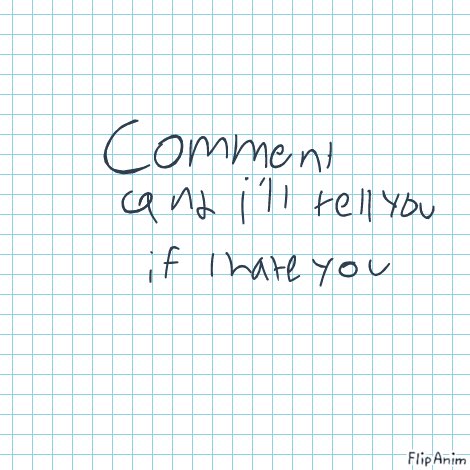 Comment
and i'll tell you
if I hate you
FlipAnim